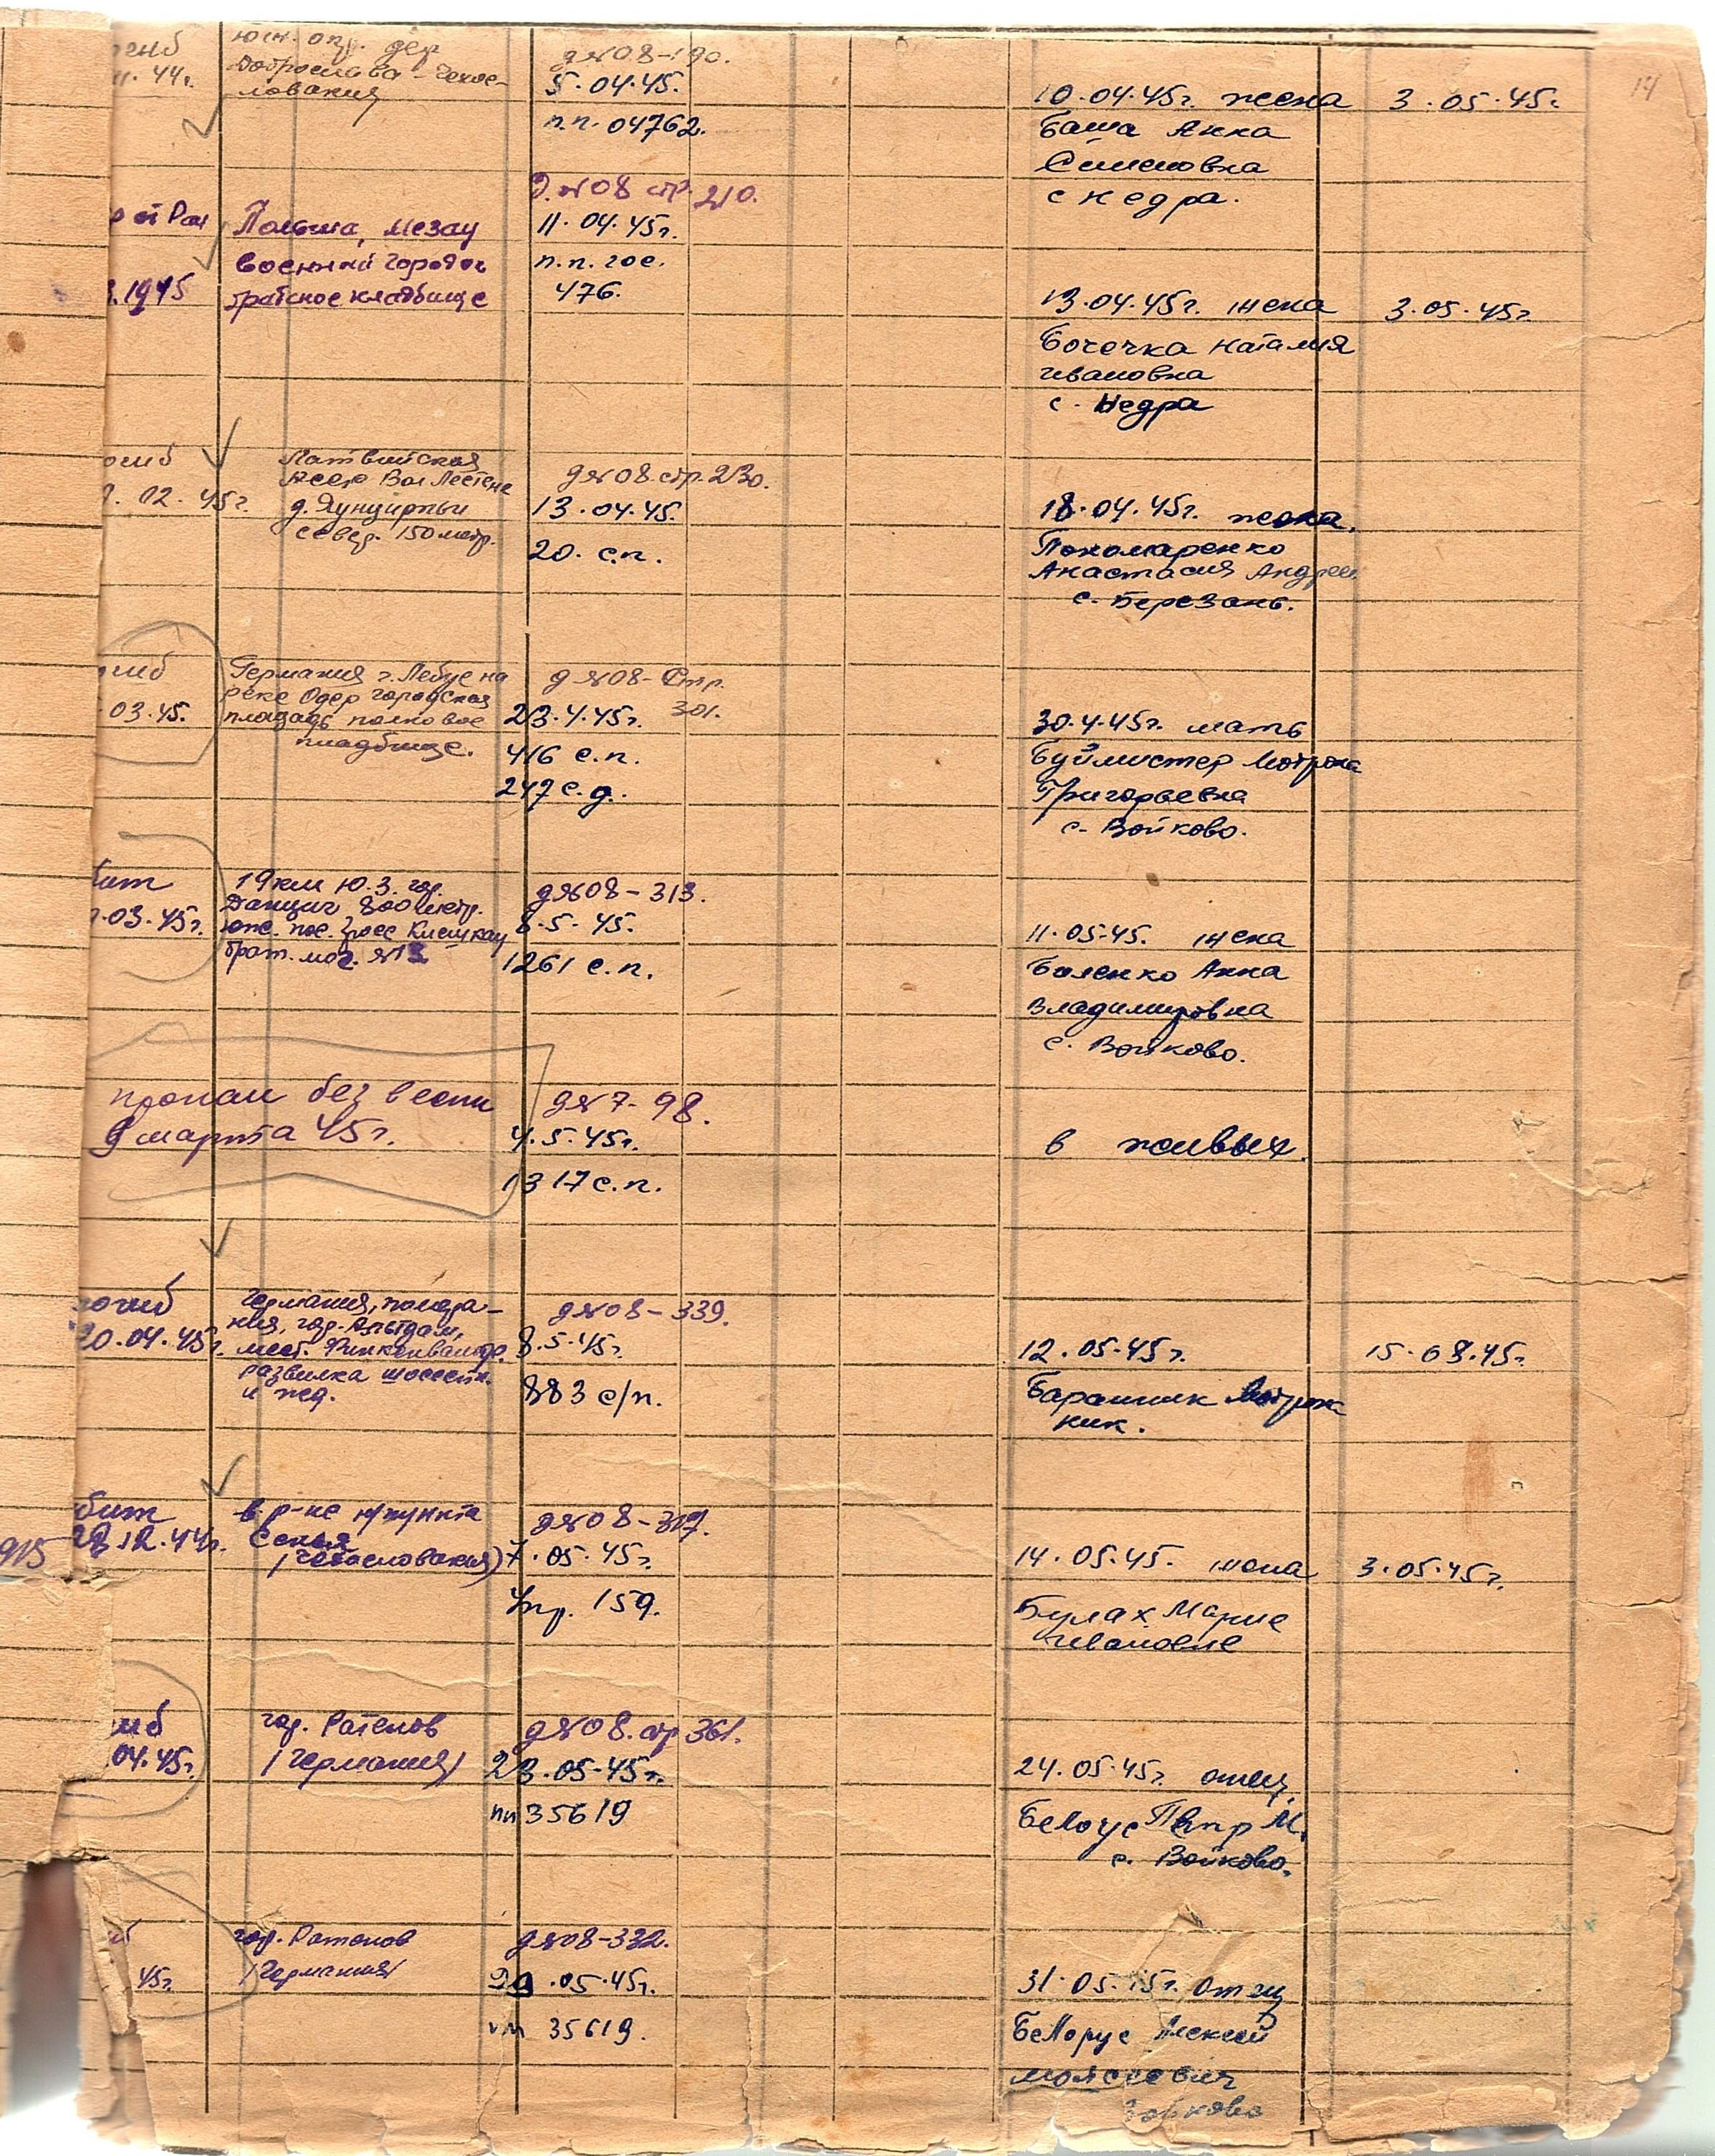 14
гиб
44г.
юж. окр. дер
Доброслава - Чехос-
ловакия
д№08-190.
5.04.45.
п.п. 04762.
10.04.45г. жена
Баша Анна
Семеновна
с Недра.
3.05.45г.
р от Ран
1945
Польша, Мезау
военный городок
братское кладбище
Д.№08 стр. 210.
11.04.45г.
п.п. гос.
476.
13.04.45г. жена
Бочечка Наталия
Ивановна
с. Недра
3.05.45г.
огиб
02.45г.
Латвийская
ССР Вол Лестене
севед. 150 метр.
д№08.стр.230.
13.04.45.
20. с.п.
18.04.45г. жена.
Пономаренко
Анастасия Андреев
с. Березань.
гиб
03.45.
Германия г. Лебус на
реке Одер городская
площадь полковое
кладбище.
д№08-Стр.
301.
23.4.45г.
416 с.п.
247 с.д.
30.4.45г. мать
Буймистер Мотрона
Григорьевна
с. Войково.
бит
03.45г.
19км Ю.З. гор.
Данциг 800 метр.
юж. пос. Гросс Клешкау
брат. мог. №13
д№08-313.
8.5.45.
1261 с.п.
11.05.45. жена
Баленко Анна
Владимировна
с. Войково.
пропал без вести
9 марта 45г.
д№7-98.
4.5.45г.
1317 с.п.
в живых.
погиб
20.04.45г.
Германия, помера-
ния, гор. Альтдам,
мест. Финкенвальде.
развилка шоссейн.
и жд.
д№08-339.
8.5.45г.
883 с/п.
12.05.45г.
Баранник Мотрона
Ник.
15.08.45г.
915
бит
12.44г.
в р-не н/пункта
(Чехословакия)
д№08-317.
7.05.45г.
Упр. 159.
14.05.45. жена
Булах Марие
Ивановне
3.05.45г.
гиб
04.45г.
гор. Ратенов
(Германия)
д№08.стр 361.
23.05.45г.
пп 35619
24.05.45г. отец.
Белоус Петр М.
с. Войково.
б
45г.
гор. Ратенов
(Германия)
д№08-332.
29.05.45г.
35619.
31.05.45г. Отцу
Белорус Алексей
Моисеевич
Войково